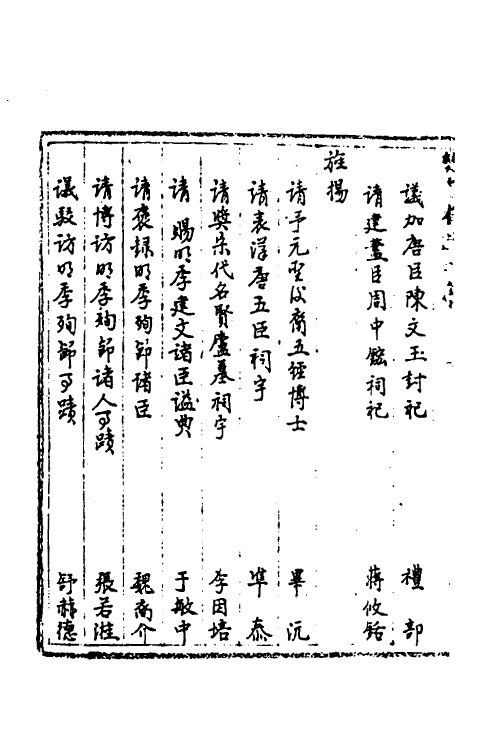 議加唐臣陳文玉封祀 禮部
請建藎臣周中鋐祠祀 蔣攸銛
旌揚
請予元聖後裔五經博士 畢沅
請表漢唐五臣祠宇 準泰
請與宋代名賢廬墓祠宇 李因培
請 賜明季建文諸臣諡典 于敏中
請褒錄明季殉節諸臣 魏裔介
請博訪明季殉節諸人事蹟 張若溎
議駁訪明季殉節事蹟 舒赫德